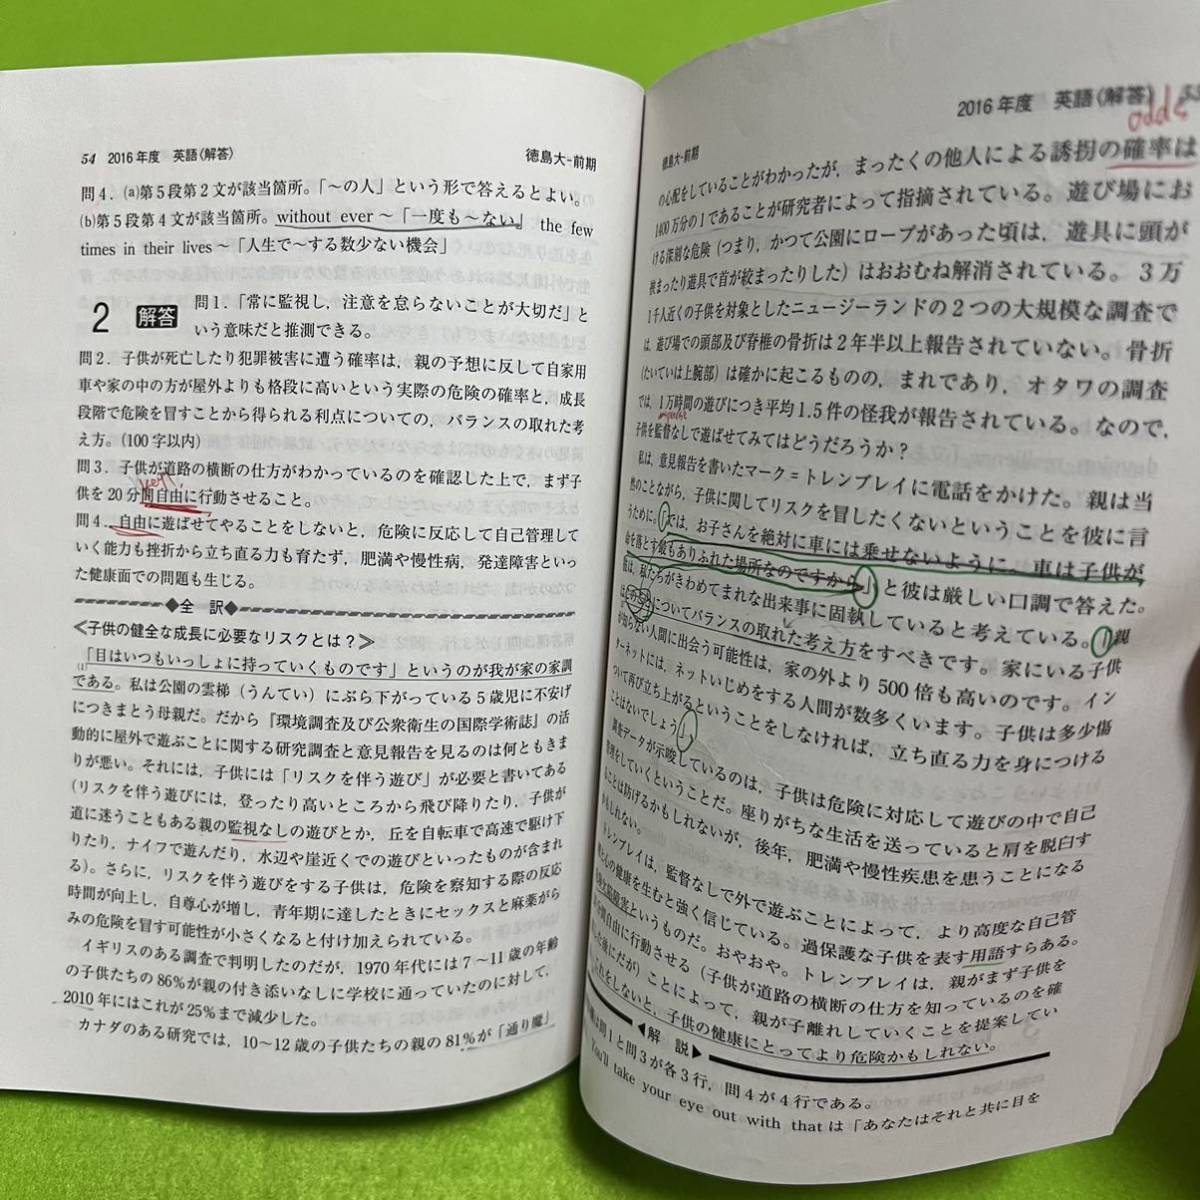 54 2016年度 英語〈解答〉 徳島大-前期
問4．(a)第5段第2文が該当箇所。「〜の人」という形で答えるとよい。
(b)第5段第4文が該当箇所。without ever 〜「一度も〜ない」 the few
times in their lives 〜「人生で〜する数少ない機会」
2 解答 問1．「常に監視し，注意を怠らないことが大切だ」と
いう意味だと推測できる。
問2．子供が死亡したり犯罪被害に遭う確率は，親の予想に反して自家用
車や家の中の方が屋外よりも格段に高いという実際の危険の確率と，成長
段階で危険を冒すことから得られる利点についての，バランスの取れた考
え方。(100字以内)
問3．子供が道路の横断の仕方がわかっているのを確認した上で，まず子
供を20分間自由に行動させること。
問4．自由に遊ばせてやることをしないと，危険に反応して自己管理して
いく能力も挫折から立ち直る力も育たず，肥満や慢性病，発達障害といっ
た健康面での問題も生じる。
◆全 訳◆
≪子供の健全な成長に必要なリスクとは？≫
(1)「目はいつもいっしょに持っていくものです」というのが我が家の家訓
である。私は公園の雲梯（うんてい）にぶら下がっている5歳児に不安げ
につきまとう母親だ。だから『環境調査及び公衆衛生の国際学術誌』の活
動的に屋外で遊ぶことに関する研究調査と意見報告を見るのは何ともきま
りが悪い。それには，子供には「リスクを伴う遊び」が必要と書いてある
(リスクを伴う遊びには，登ったり高いところから飛び降りたり，子供が
道に迷うこともある親の監視なしの遊びとか，丘を自転車で高速で駆け下
りたり，ナイフで遊んだり，水辺や崖近くでの遊びといったものが含まれ
る)。さらに，リスクを伴う遊びをする子供は，危険を察知する際の反応
時間が向上し，自尊心が増し，青年期に達したときにセックスと麻薬がら
みの危険を冒す可能性が小さくなると付け加えられている。
イギリスのある調査で判明したのだが，1970年代には7〜11歳の年齢
の子供たちの86%が親の付き添いなしに学校に通っていたのに対して，
2010年にはこれが25%まで減少した。
カナダのある研究では，10〜12歳の子供たちの親の81%が「通り魔」
徳島大-前期 2016年度 英語〈解答〉
odds
の心配をしていることがわかったが，まったくの他人による誘拐の確率は
1400万分の1であることが研究者によって指摘されている。遊び場にお
ける深刻な危険（つまり，かつて公園にロープがあった頃は，遊具に頭が
挟まったり遊具で首が絞まったりした）はおおむね解消されている。3万
1千人近くの子供を対象としたニュージーランドの2つの大規模な調査で
は，遊び場での頭部及び脊椎の骨折は2年半以上報告されていない。骨折
(たいていは上腕部) は確かに起こるものの，まれであり，オタワの調査
では，1万時間の遊びにつき平均1.5件の怪我が報告されている。なので，
子供を監督なしで遊ばせてみてはどうだろうか？
私は，意見報告を書いたマーク＝トレンブレイに電話をかけた。親は当
然のことながら，子供に関してリスクを冒したくないということを彼に言
うために。「では，お子さんを絶対に車には乗せないように。車は子供が
命を落とす最もありふれた場所なのですから」と彼は厳しい口調で答えた。
彼は，私たちがきわめてまれな出来事に固執していると考えている。「親
についてバランスの取れた考え方をすべきです。家にいる子供
が知らない人間に出会う可能性は，家の外より500倍も高いのです。イン
ターネットには，ネットいじめをする人間が数多くいます。子供は多少傷
ついて再び立ち上がるということをしなければ，立ち直る力を身につける
ことはないでしょう」
調査データが示唆しているのは，子供は危険に対応して遊びの中で自己
管理をしていくということだ。座りがちな生活を送っていると肩を脱臼す
ることは防げるかもしれないが，後年，肥満や慢性疾患を患うことになる
かもしれない。
トレンブレイは，監督なしで外で遊ぶことによって，より高度な自己管
と心の健康を生むと強く信じている。過保護な子供を表す用語すらある。
障害というものだ。おやおや。トレンブレイは，親がまず子供を
自由に行動させる（子供が道路の横断の仕方を知っているのを確
した後にだが）ことによって，親が子離れしていくことを提案してい
これをしないと，子供の健康にとってより危険かもしれない。
◀解 説▶
は問1と問3が各3行，問4が4行である。
You'll take your eye out with that は「あなたはそれと共に目を